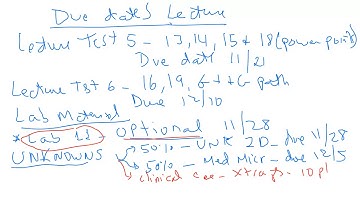 Due dates Lecture
Lecture Test 5 - 13, 14, 15 & 18 (power points)
Due date 11/21
Lecture Tst 6 - 16, 19, & path
Due 12/10
Lab Material
* Lab 11 - OPTIONAL 11/28
UNKNOWNS
50% - UNK 2D - due 11/28
50% - Med Micr - due 12/5
clinical - Xtra - 10 p